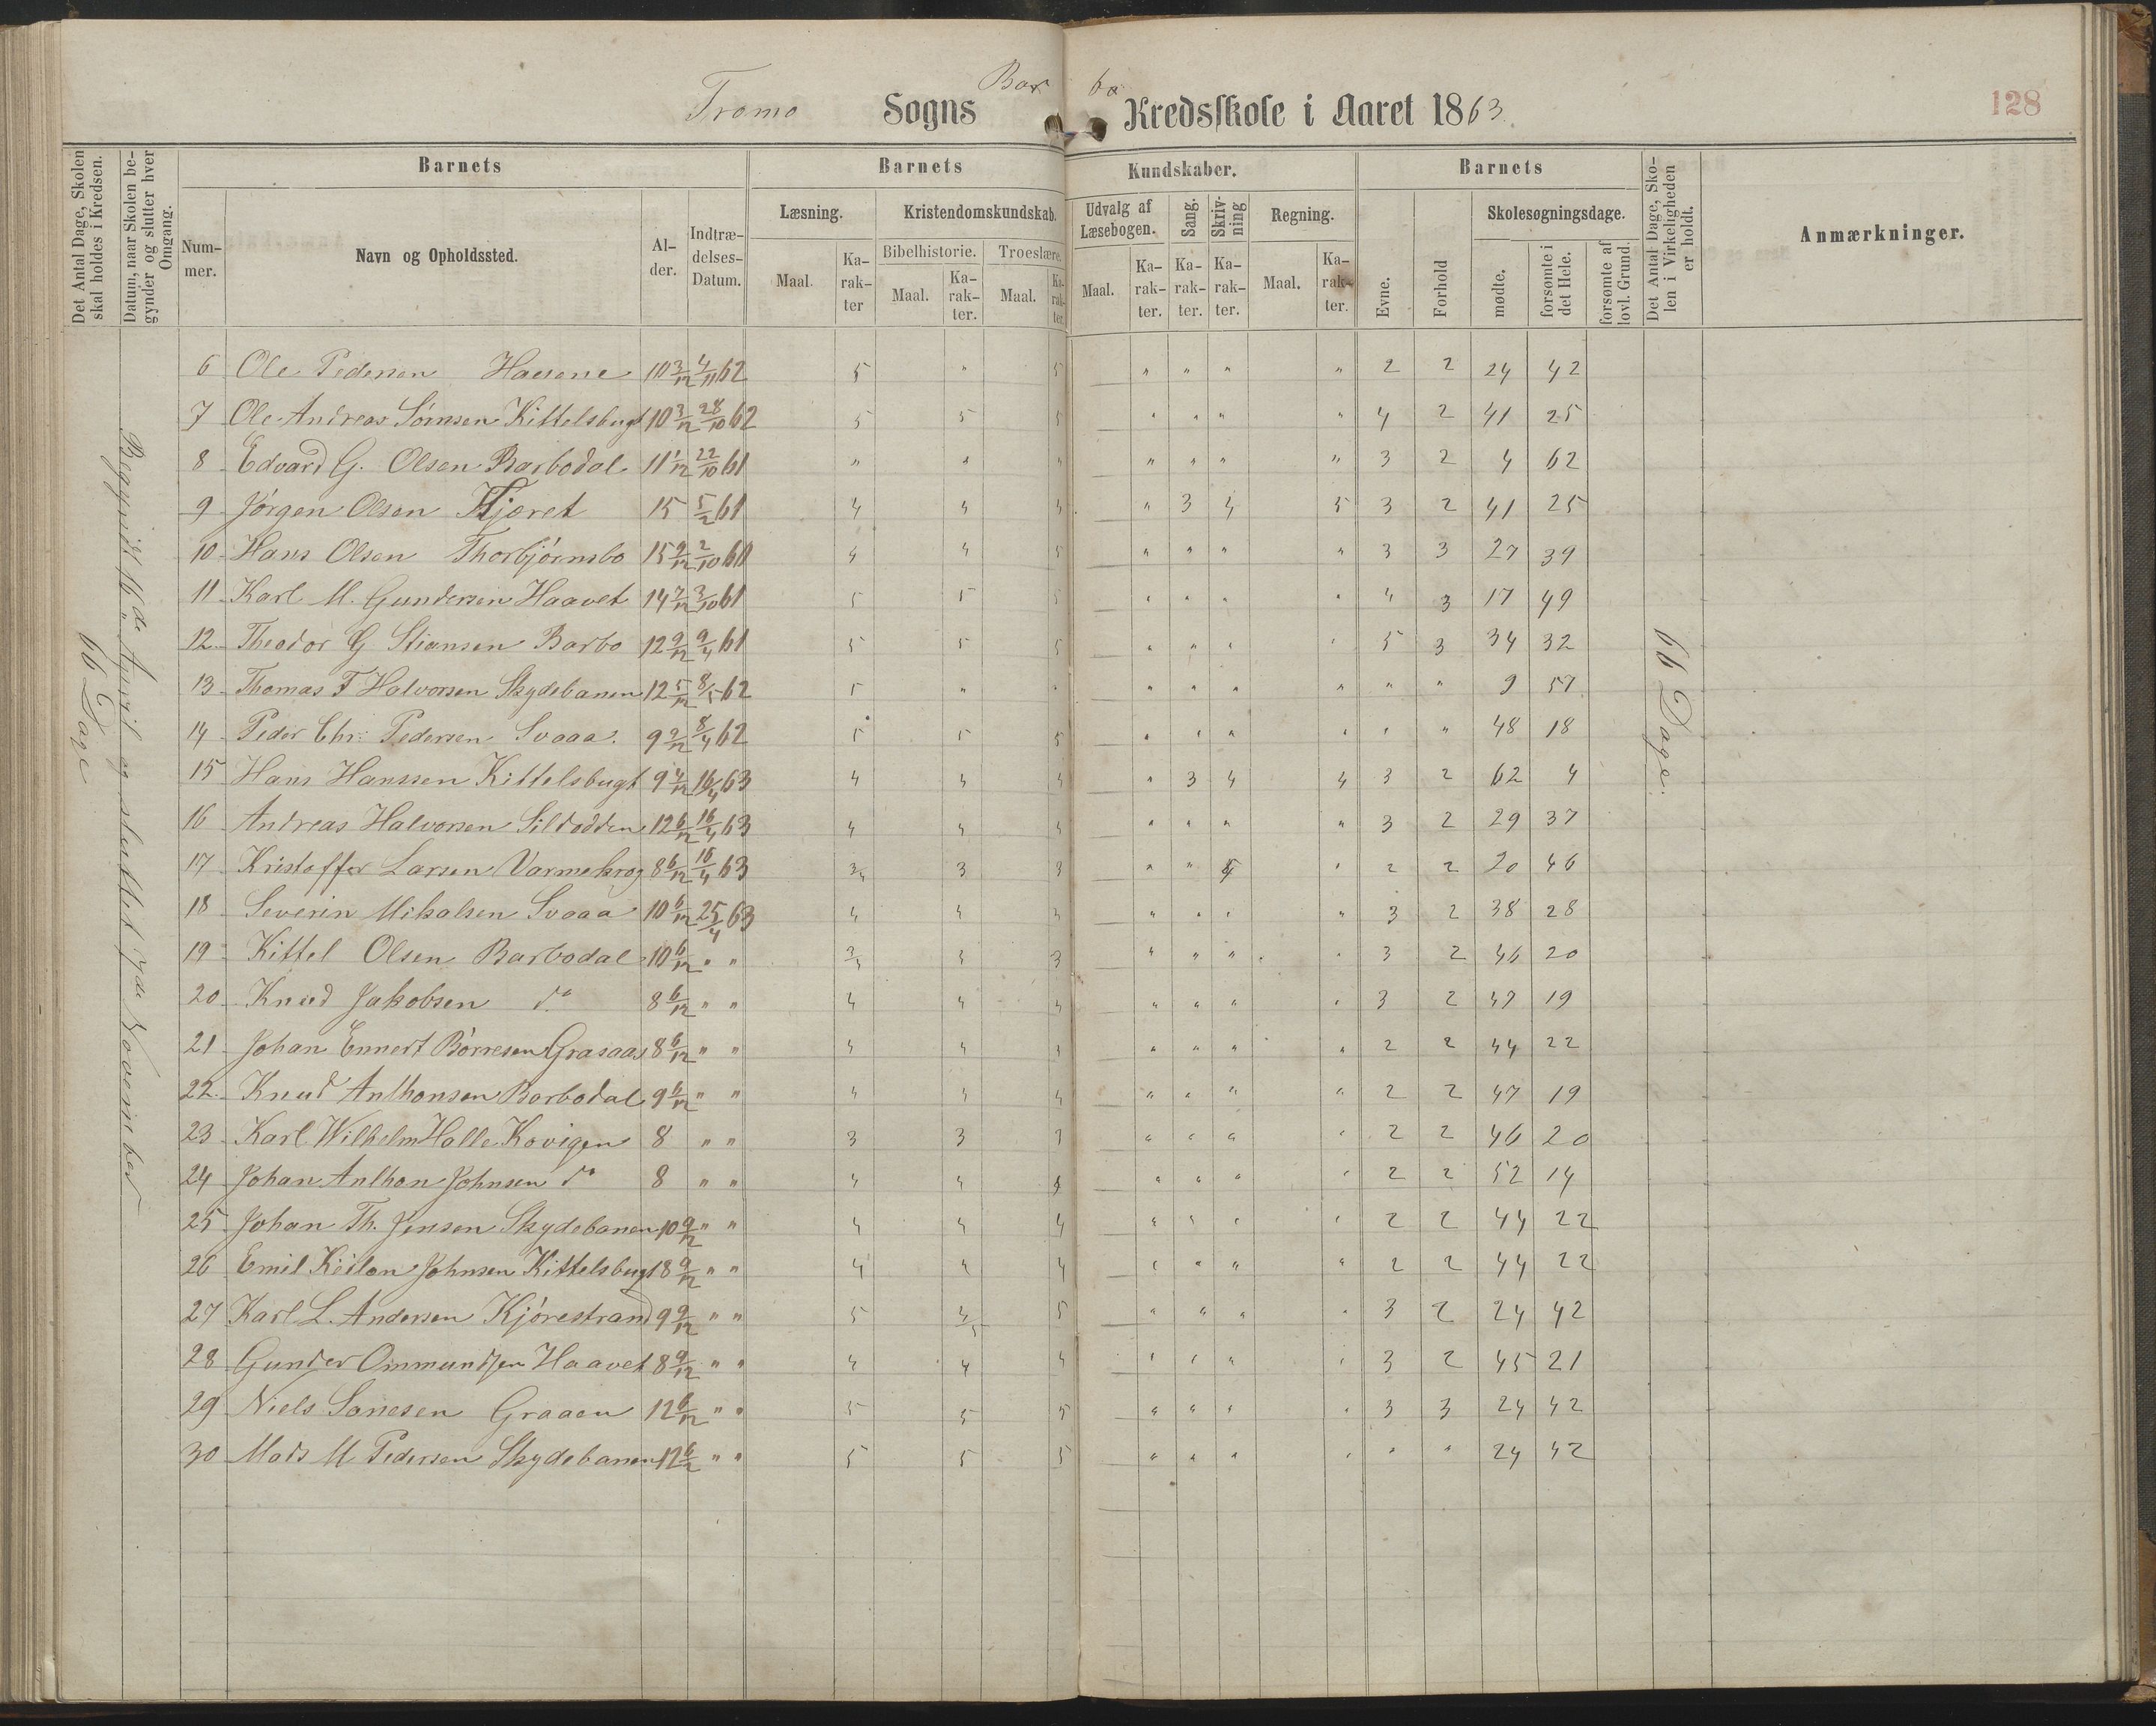 Tromo Sogns Bar bo Kredsskole i Aaret 1863. 128
Det Antal Dage, Skolen skal holdes i Kredsen.
Datum, naar Skolen begynder og slutter hver Omgang.
Barnets Barnets Kundskaber. Barnets
Nummer. Navn og Opholdssted. Alder. Indtrædelses-Datum. Læsning. Kristendomskundskab. Udvalg af Læsebogen. Sang. Skrivning Regning. Evne. Forhold Skolesøgningsdage. Det Antal Dage, Skolen i Virkeligheden er holdt. Anmærkninger.
Maal. Karakter Bibelhistorie. Troeslære. Maal. Karakter. Karakter. Karakter. Maal. Karakter. mødte. forsømte i det Hele. forsømte af lovl. Grund.
Maal. Karakter. Maal. Karakter.
66 Dage
Begyndt 16de April og sluttet 7de November
66 Dage.
6 Ole Pedersen Hausene 10 3/12 4/11 62 5 " 5 " " " " 2 2 24 42
7 Ole Andreas Sørnsen Kittelsbugt 10 3/12 28/10 62 5 5 5 " " " " 4 2 41 25
8 Edvard G. Olsen Barbodal 11 1/12 22/10 61 " " " " " " " 3 2 4 62
9 Jörgen Olsen Kjoret 15 5/2 61 4 4 4 " 3 4 5 3 2 41 25
10 Hans Olsen Thorbjörnsbo 15 9/12 2/10 60 4 4 5 " " " " 3 3 27 39
11 Karl M. Gundersen Haavet 14 7/12 3/10 61 5 5 5 " " " " 4 3 17 49
12 Theodor G Stiansen Barbo 12 9/12 9/4 61 5 5 5 " " " " 5 3 34 32
13 Thomas F Halvorsen Skydebanen 12 5/12 8/5 62 5 " " " " " " " " 9 57
14 Peder Chr. Pedersen Svaaa. 9 9/12 8/4 62 5 5 5 " " " " " " 48 18
15 Hans Hanssen Kittelsbugt 9 4/12 16/4 63 4 4 4 " 3 4 4 3 2 62 4
16 Andreas Halvorsen Sildodden 12 6/12 16/4 63 4 4 4 " " " " 3 2 29 37
17 Kristoffer Larsen Varmekrog 8 6/12 16/4 63 3/4 3 3 " " " 2 2 20 46
18 Severin Mikalsen Svaaa 10 6/12 25/4 63 4 4 4 " " " " 3 2 38 28
19 Kittel Olsen Barbodal 10 6/12 " " 3/4 4 3 " " " " 3 2 46 20
20 Knud Jakobsen do 8 6/12 " " 4 4 4 " " " " 3 2 47 19
21 Johan Ennert Börresen Grasaas 8 6/12 " " 4 4 4 " " " " 2 2 44 22
22 Knud Anthonsen Barbodal 9 6/12 " " 4 4 4 " " " " 2 2 47 19
23 Karl Wilhelm Halle Kovigen 8 " " 3 3 3 " " " " 2 2 46 20
24 Johan Anthon Johnsen do 8 " " 4 4 4 " " " " 2 2 52 14
25 Johan Th. Jensen Skydebanen 10 9/12 " " 4 4 4 " " " " 2 2 44 22
26 Emil Johnsen Kittelsbugt 8 9/12 " " 4 4 4 " " " " 2 2 44 22
27 Karl L. Andersen Kjörestrand 9 9/12 " " 5 4/5 5 " " " " 3 2 24 42
28 Gunder Ommundsen Haavet 8 9/12 " " 4 4 4 " " " " 3 2 45 21
29 Niels Graaen 12 6/12 " " 5 5 5 " " " " 3 3 24 42
30 Mads M Pedersen Skydebanen 12 6/12 " " 5 5 5 " " " " " " 24 42